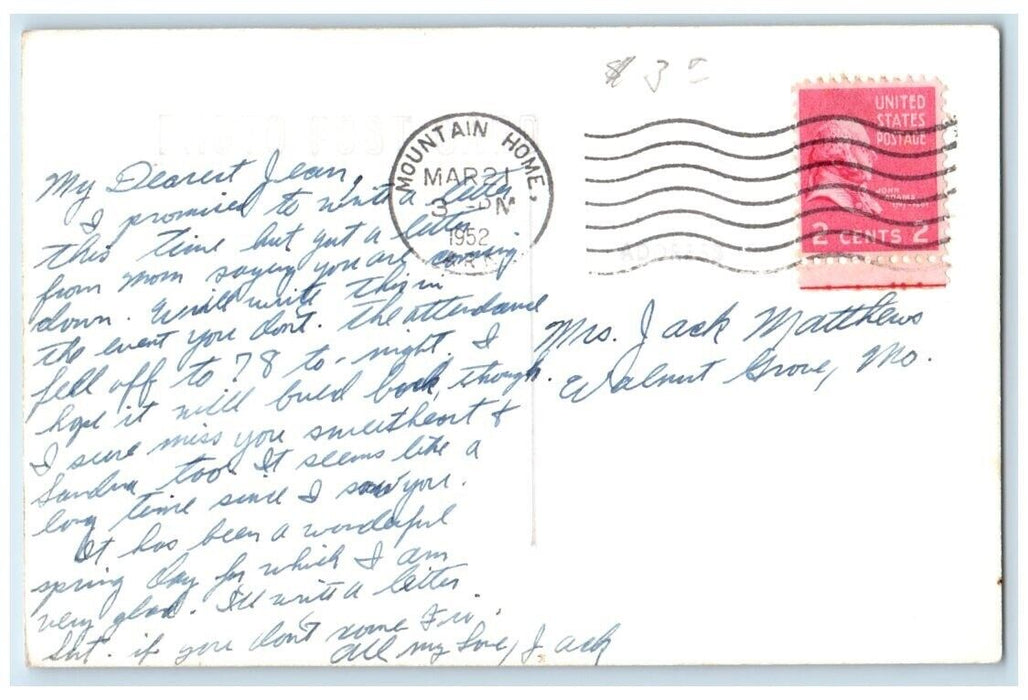 $ 3 00
MOUNTAIN HOME,
MAR 21
3 PM
1952
ARK.
UNITED
STATES
POSTAGE
JOHN
ADAMS
2 CENTS 2
My Dearest Jean,
I promised to write a letter
this time but got a letter
from mom saying you are coming
down. I will write this in
the event you dont. The attendance
fell off to 78 to-night. I
hope it will build back, though.
I sure miss you sweetheart &
Sandra too. It seems like a
long time since I saw you.
It has been a wonderful
spring day for which I am
very glad. I'll write a letter
Sat. if you don't come Fri.
All my love, Jack
Mrs. Jack Matthews
Walnut Grove, Mo.